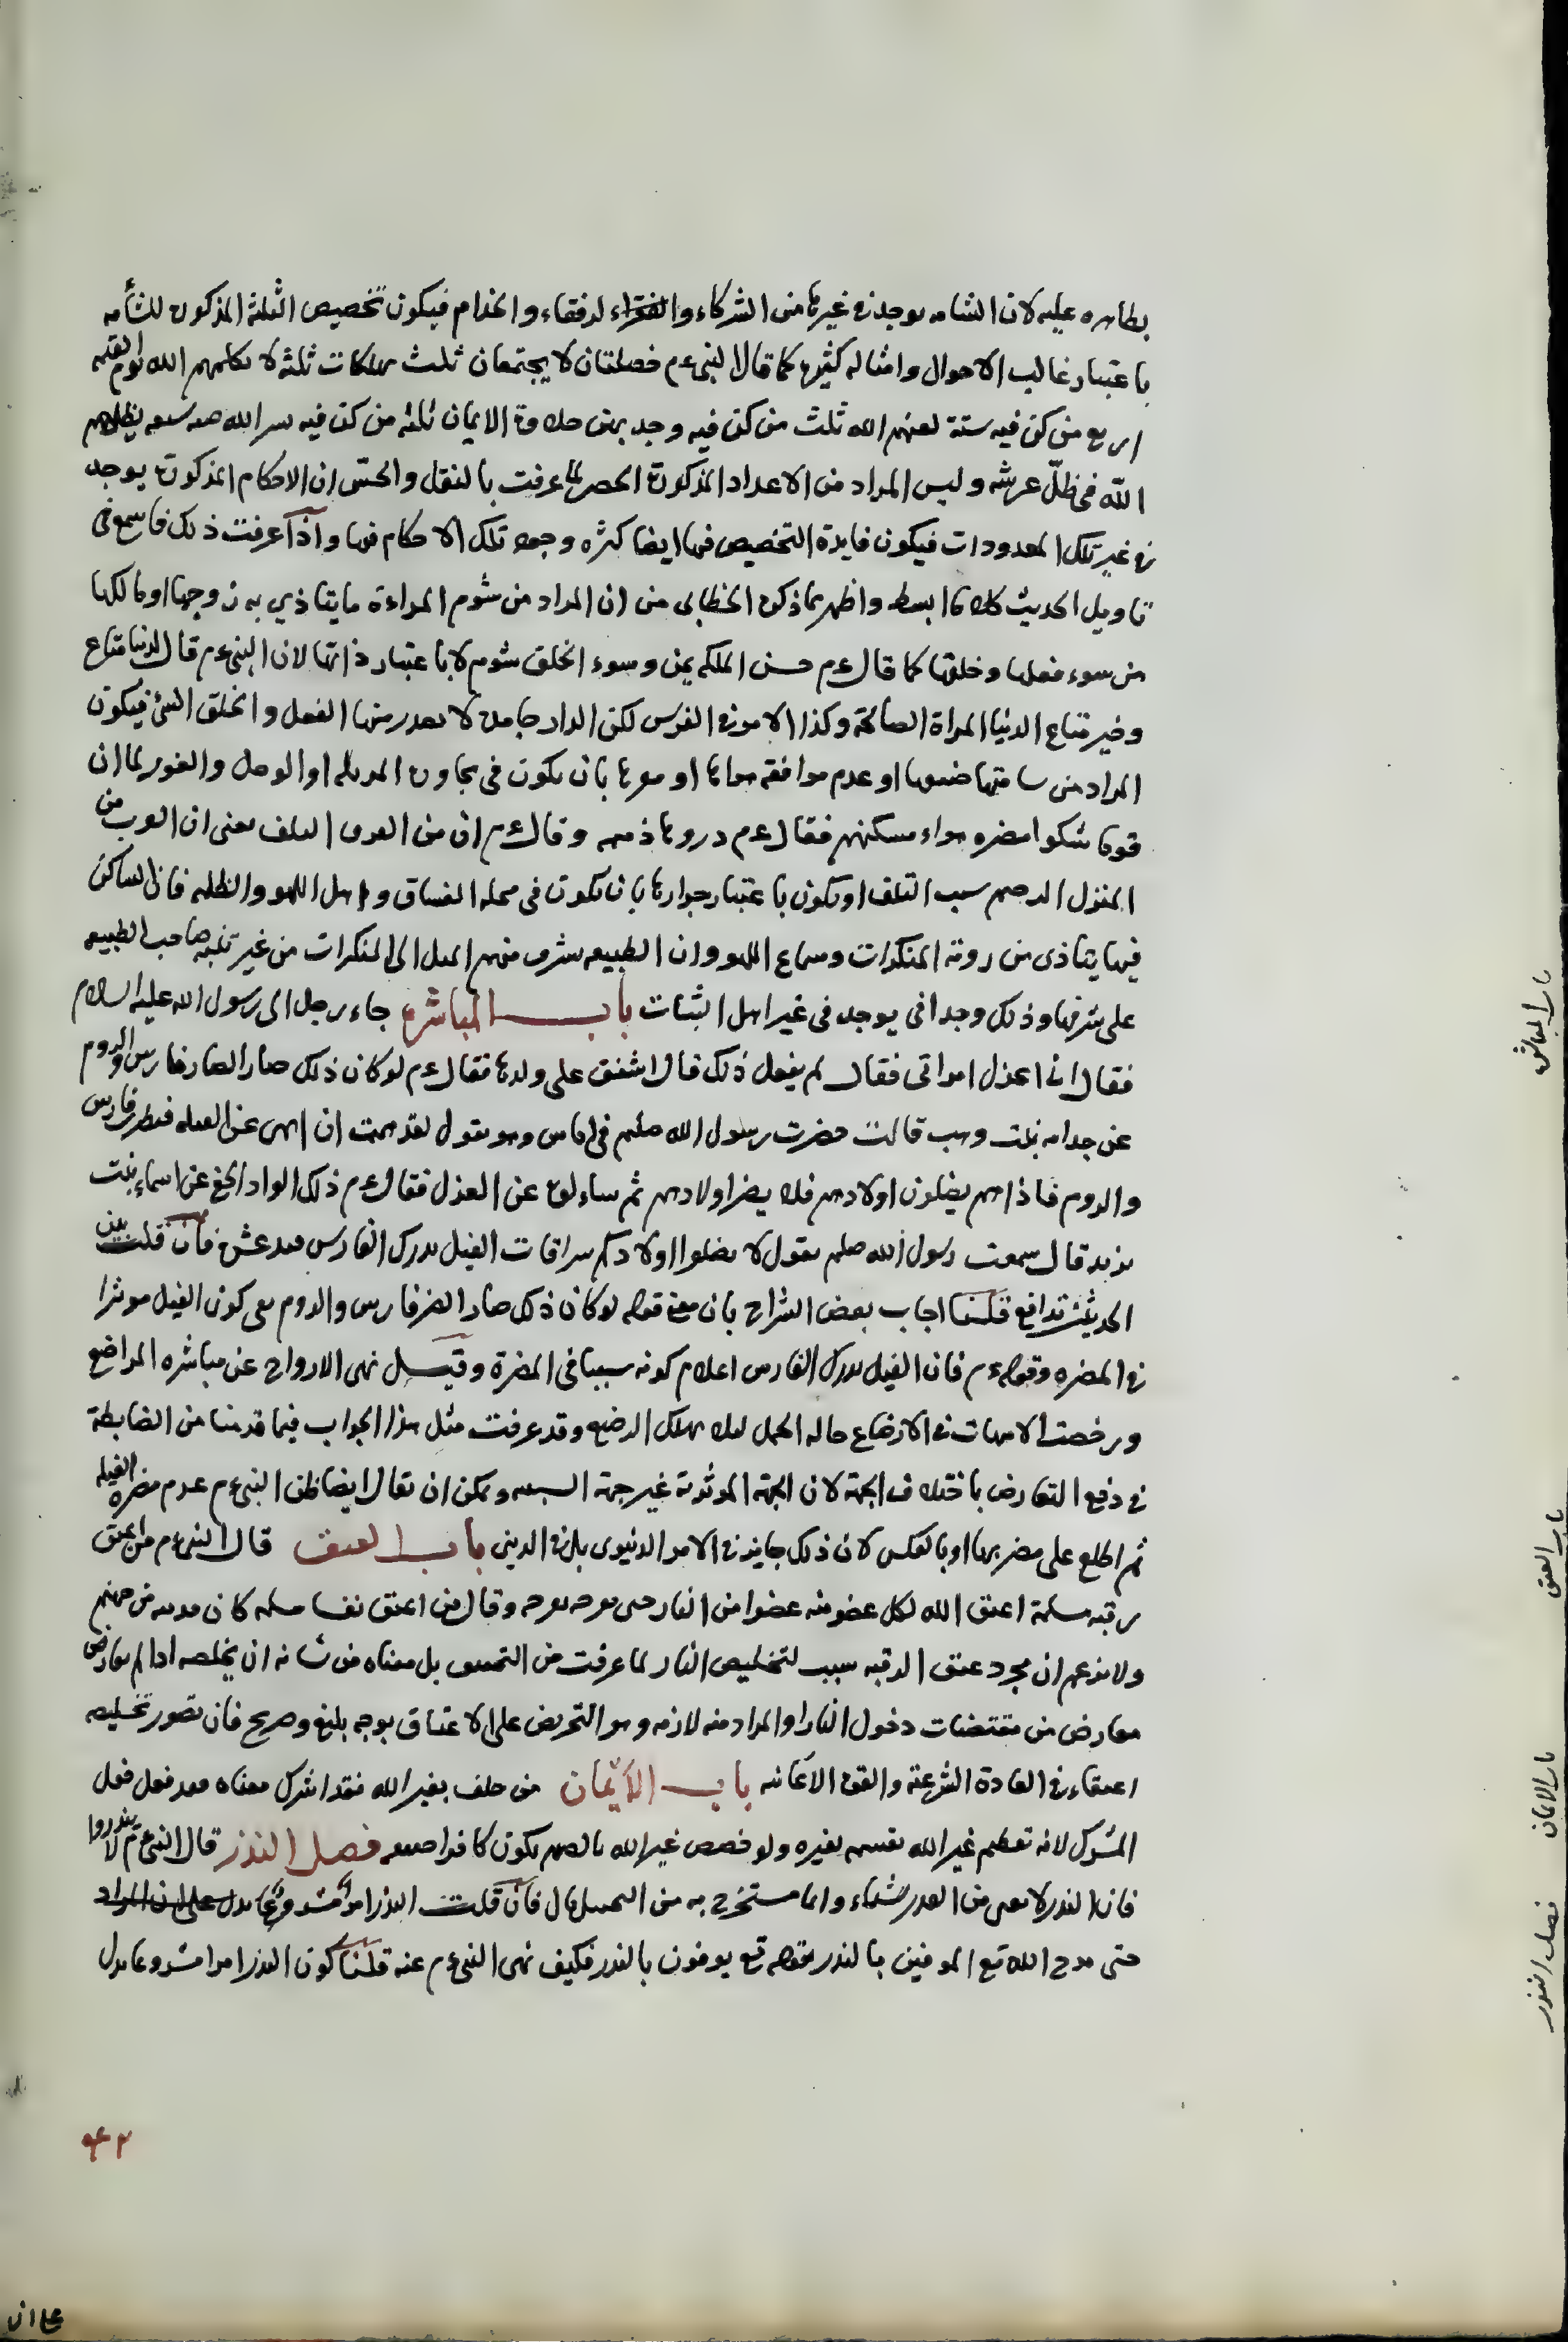 بظاهره عليه لان الشامه يوجد في غيرها من الشركاء والرفقاء والخدام فيكون تخصيص الثلثة المذكورة للشأمه
باعتبار غالب الاحوال وامثاله كثيرة كما قال النبي ءم خصلتان لا يجتمعان ثلث مهلكات ثلثة لا يكلمهم الله يوم القيمه
اربع من كن فيه ستة لعنهم الله ثلث من كن فيه وجد بهن حلاوة الايمان ثلثه من كن فيه يسر الله سبعه يظلهم
الله في ظلّ عرشه وليس المراد من الاعداد المذكورة الحصر لما عرفت بالنقل والحسّ ان الاحكام المذكورة يوجد
في غير تلك المعدودات فيكون فايدة التخصيص فيها ايضا كثره وجود تلك الاحكام فيها واذا عرفت ذلك فاسمع في
تاويل الحديث كلاما ابسط واظهر مما ذكره الخطابي من ان المراد من شوم المراءة ما يتاذي به زوجها او مالكها
من سوء فعلها وخلقها كما قال ءم حسن الملكه يمن وسوء الخلق شوم لا باعتبار ذاتها لان النبي ءم قال الدنيا متاع
وخير متاع الدنيا المراة الصالحة وكذا الامر في الفرس لكن الدار جامدة لا يصدر منها الفعل والخلق السئ فيكون
المراد من سامتها ضيقها او عدم موافقه هوائها او بان يكون في مجاورة المزبله او الوحل والغور لما ان
قوما شكوا مضره هواء مسكنهم فقال ءم دروها ذميمه وقال ءم ان من القرف التلف يعنى ان القرب من
المنزل الوخيم سبب التلف او يكون باعتبار جوارها بان يكون في محله الفساق واهل اللهو والظلمه فان الساكن
فيها يتاذى من روية المنكرات وسماع اللهو وان الطبيعه يسرق منهم الميل الى المنكرات من غير تنبه صاحب الطبيعه
على سرقها وذلك وجداني يوجد في غير اهل الثبات باب المباشرة جاء رجل الى رسول الله عليه السلام
فقال انى اعزل امراتى فقال لم يفعل ذلك قال اشفق على ولدها فقال ءم لو كان ذلك ضارا لضار فارس والروم
عن جدامه بنت وهب قالت حضرت رسول الله صلعم في اناس وهو يقول لقد هممت ان انهى عن الغيله فنظرت فارس
والروم فاذا هم يغيلون اولادهم فلا يضر اولادهم ثم ساءلوه عن العزل فقال ءم ذلك الواد الخفي عن اسماء بنت
يزيد قال سمعت رسول الله صلعم يقول لا تقتلوا اولادكم سرا فان الغيل يدرك الفارس فيدعثره فان قلت بين
الحديثين تدافع قلنا اجاب بعض الشراح بان معنى قوله لو كان ذلك ضارا لضر فارس والروم نفي كون الغيل موثرا
في المضره وقوله ءم فان الغيل يدرك الفارس اعلام كونه سببا في المضرة وقيل نهى الازواج عن مباشره المراضع
ورخصت الامهات في الارضاع حاله الحمل ليلا يهلك الرضيع وقد عرفت مثل هذا الجواب فيما قدمنا من الضابطة
في دفع التعارض باختلاف الجهة لان الجهة الموثرة غير جهة السببيه ويمكن ان يقال ايضا ظن النبي ءم عدم مضره الغيله
ثم اطلع على مضربها او بالعكس لان ذلك جايز في الامر الدنيوى بل في الدينى باب العتق قال النبي ءم من اعتق
رقبه مسلمة اعتق الله لكل عضو منه عضوا من النار حتى فرجه بفرجه وقال من اعتق نفسا مسلمه كان فديته من جهنم
ولا يزعم ان مجرد عتق الرقبه سبب لتخليص النار لما عرفت من التحقيق بل معناه من شانه ان يخلصه اذا لم يعارض
معارض من مقتضيات دخول النار او المراد منه لازمه وهو التحريض على الاعتاق بوجه بليغ وصريح فان تصور تخليصه
اعتقاء في العادة الشرعية والقوة الايمانيه باب الأيمان من حلف بغير الله فقد اشرك معناه فقد فعل فعل
المشرك لانه تعظيم غير الله بقسمه بغيره ولو خصص غير الله بالقسم يكون كافرا حقيقه فصل النذر قال النبي ءم لا ينذروا
فان النذر لا يغنى من القدر شياء وانما يستخرج به من البخيل مال فان قلت النذر امر مشروع
حتى مدح الله تع الموفين بالنذر بقوله تع يوفون بالنذر فكيف نهى النبي ءم عنه قلنا كون النذر امرا مشروعا يدل
باب المباشرة
باب العتق
باب الايمان
فصل النذر
على ان